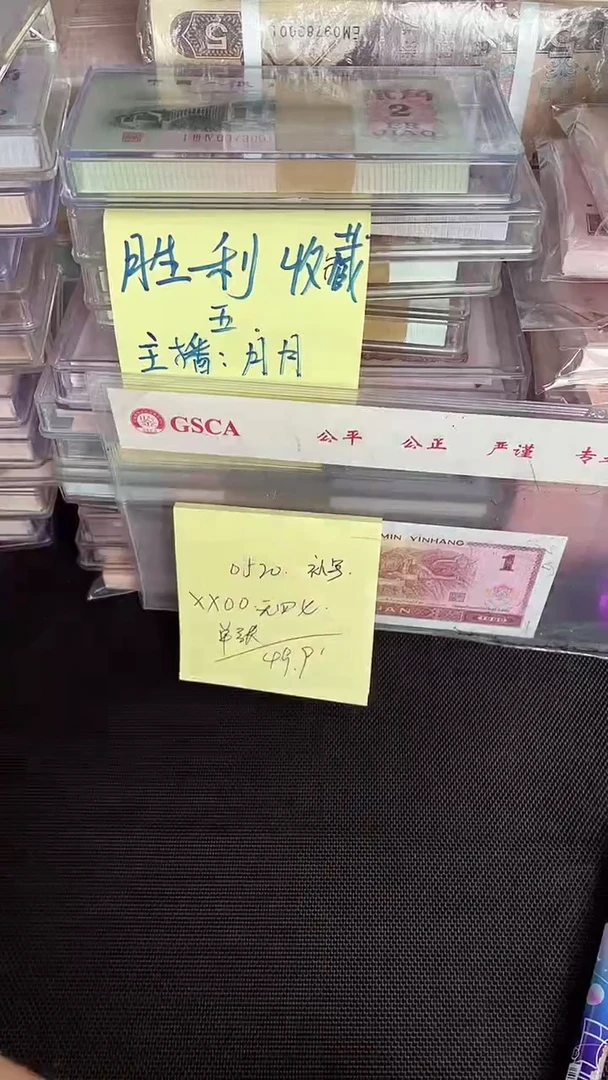 5
EM0978900
5
贰角
2
ER
JIAO
胜利 收藏
五
主播：月月
GSCA 公平 公正 严谨 专
MIN YINHANG
1
UAN
1990
0520. 补号
XX00 无四七
单张
49.9